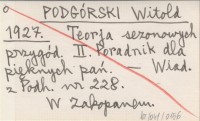 PODGÓRSKI Witold
1927. Teorja sezonowych
przygód. II. Poradnik dla
pięknych pań. — Wiad.
z Podh. nr 228.
W Zakopanem.